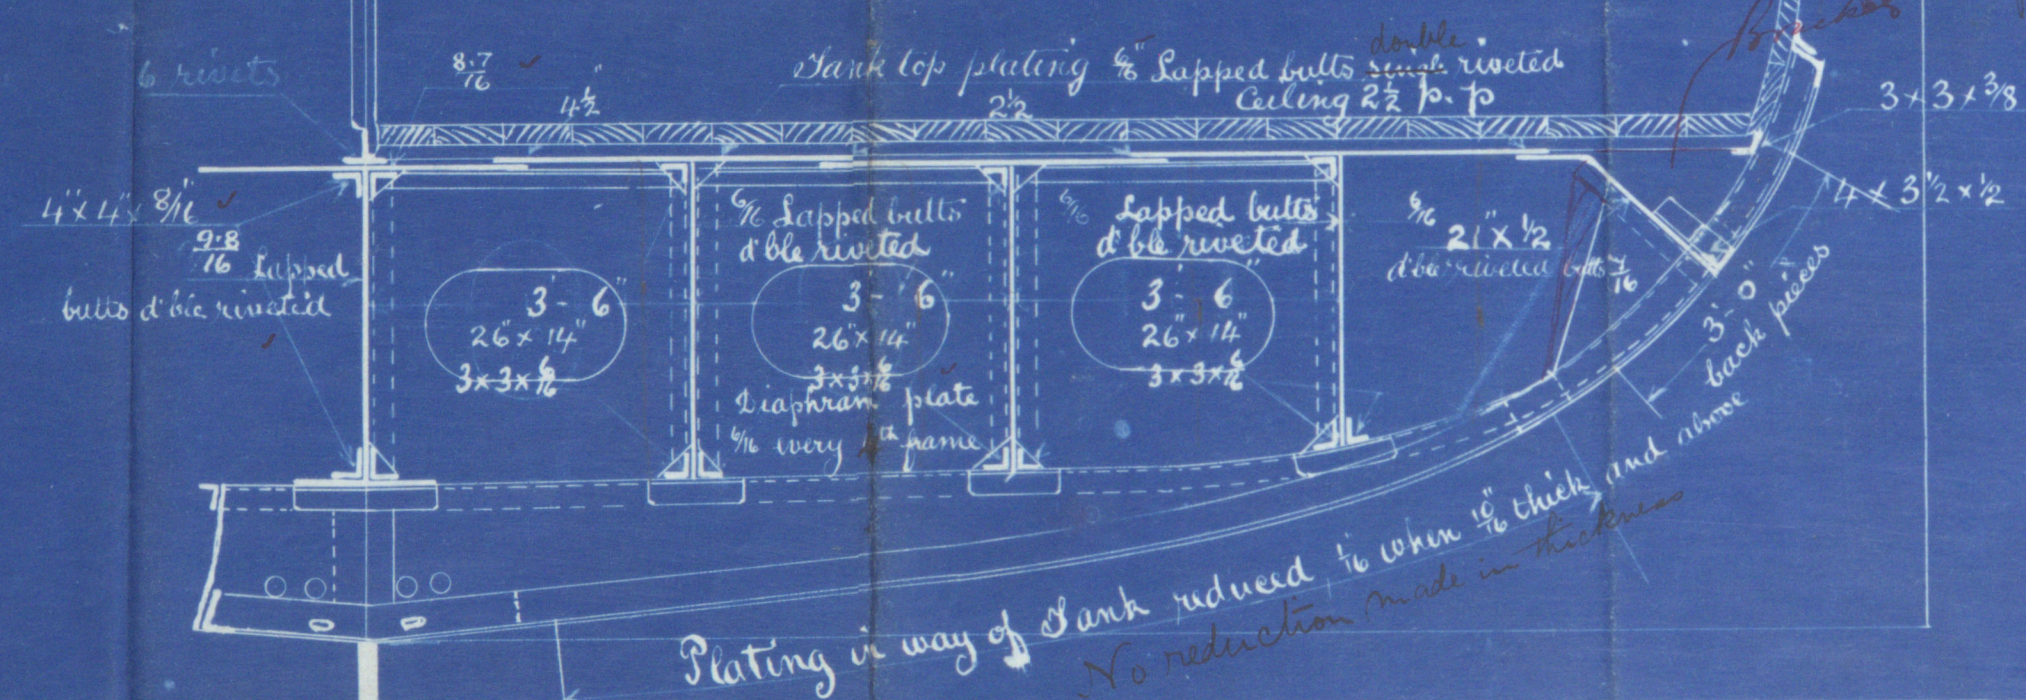 6 rivets
8·7/16
4 1/2"
double
Tank top plating 6/16" Lapped butts single riveted
2 1/2
Ceiling 2 1/2 p. p
3 × 3 × 3/8
4" × 4" × 8/16
9·8/16
Lapped
butts d'ble riveted
6/16 Lapped butts
d'ble riveted
6/16
Lapped butts
d'ble riveted
6/16
21" × 1/2
d'ble riveted butts
7/16
4 × 3 1/2 × 1/2
3' - 6"
26" × 14"
3 × 3 × 6/16
3 - 6"
26" × 14"
3 × 3 × 6/16
Diaphram plate
6/16 every 4th frame
3' - 6"
26" × 14"
3 × 3 × 6/16
3' - 0"
back pieces
Plating in way of Tank reduced 1/16 when 10/16" thick and above
No reduction made in thickness